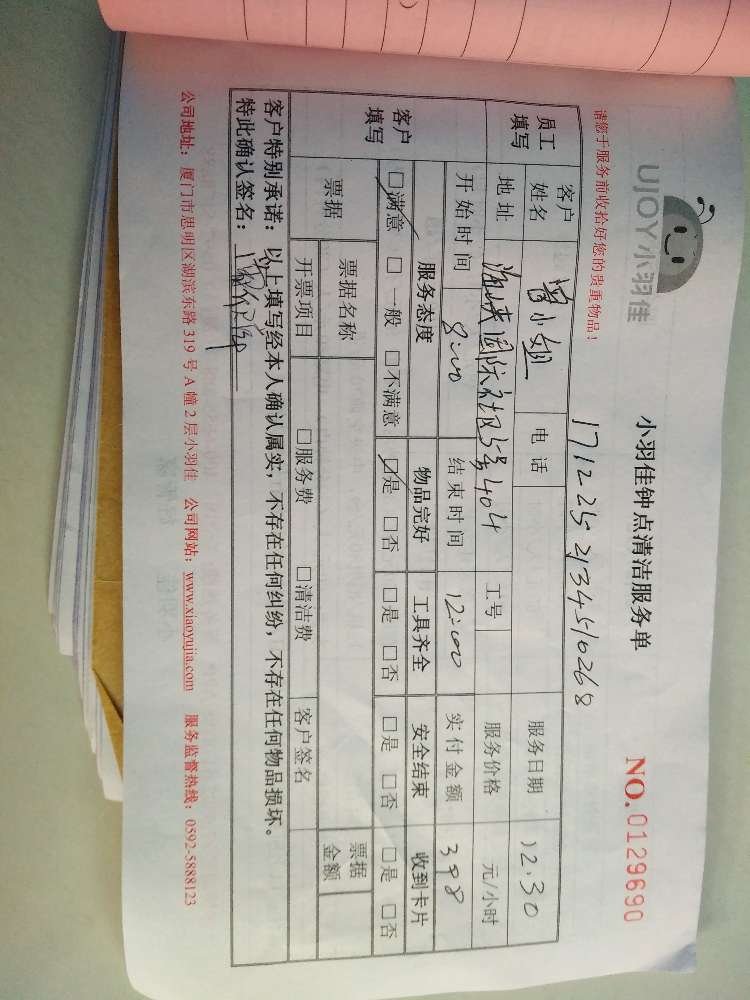 UJOY小羽佳
小羽佳钟点清洁服务单
NO.0129690
请您于服务前收拾好您的贵重物品！
1712252134510268
员工填写
客户姓名 曾小姐 电话 服务日期 12.30
地址 海峡国际社区5号404 工号 服务价格 元/小时
开始时间 8:00 结束时间 12:00 实付金额 398
客户填写
服务态度 物品完好 工具齐全 安全结束 收到卡片
□满意 □一般 □不满意 □是 □否 □是 □否 □是 □否 □是 □否
票据 票据名称 票据金额
开票项目 □服务费 □清洁费 客户签名
客户特别承诺：以上填写经本人确认属实，不存在任何纠纷，不存在任何物品损坏。
特此确认签名：
公司地址：厦门市思明区湖滨东路319号A幢2层小羽佳 公司网站：www.xiaoyujia.com 服务监督热线：0592-5888123